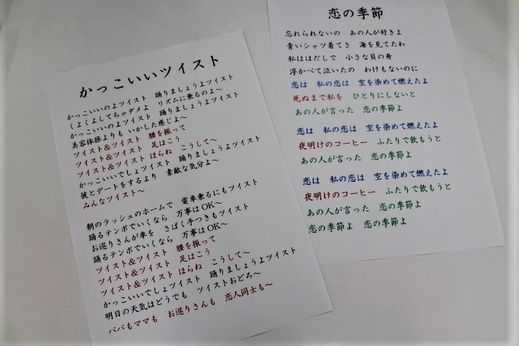 かっこいいツイスト
かっこいいのよツイスト　踊りましょうよツイスト
くよくよしてちゃダメよ　リズムに乗るのよ～
かっこいいのよツイスト　踊りましょうよツイスト
美容体操よりも　いかした感じよ～
ツイスト＆ツイスト　腰を振って
ツイスト＆ツイスト　足はこう
ツイスト＆ツイスト　ほらね　こうして～
かっこいいでしょツイスト　踊りましょうよツイスト
彼とデートをするより　素敵な気分よ～
みんなツイスト～
朝のラッシュのホームで　電車乗るにもツイスト
踊るテンポでいくなら　万事はOK～
お巡りさんが車を　さばく手つきもツイスト
踊るテンポでいくなら　万事はOK～
ツイスト＆ツイスト　腰を振って
ツイスト＆ツイスト　足はこう
ツイスト＆ツイスト　ほらね　こうして～
かっこいいでしょツイスト　踊りましょうよツイスト
明日の天気はどうでも　ツイストおどろ～
パパもママも　お巡りさんも　恋人同士も～
恋の季節
忘れられないの　あの人が好きよ
青いシャツ着てさ　海を見てたわ
私ははだしで　小さな貝の舟
浮かべて泣いたの　わけもないのに
恋は　私の恋は　空を染めて燃えたよ
死ぬまで私を　ひとりにしないと
あの人が言った　恋の季節よ
恋は　私の恋は　空を染めて燃えたよ
夜明けのコーヒー　ふたりで飲もうと
あの人が言った　恋の季節よ
恋は　私の恋は　空を染めて燃えたよ
夜明けのコーヒー　ふたりで飲もうと
あの人が言った　恋の季節よ
恋の季節よ　恋の季節よ